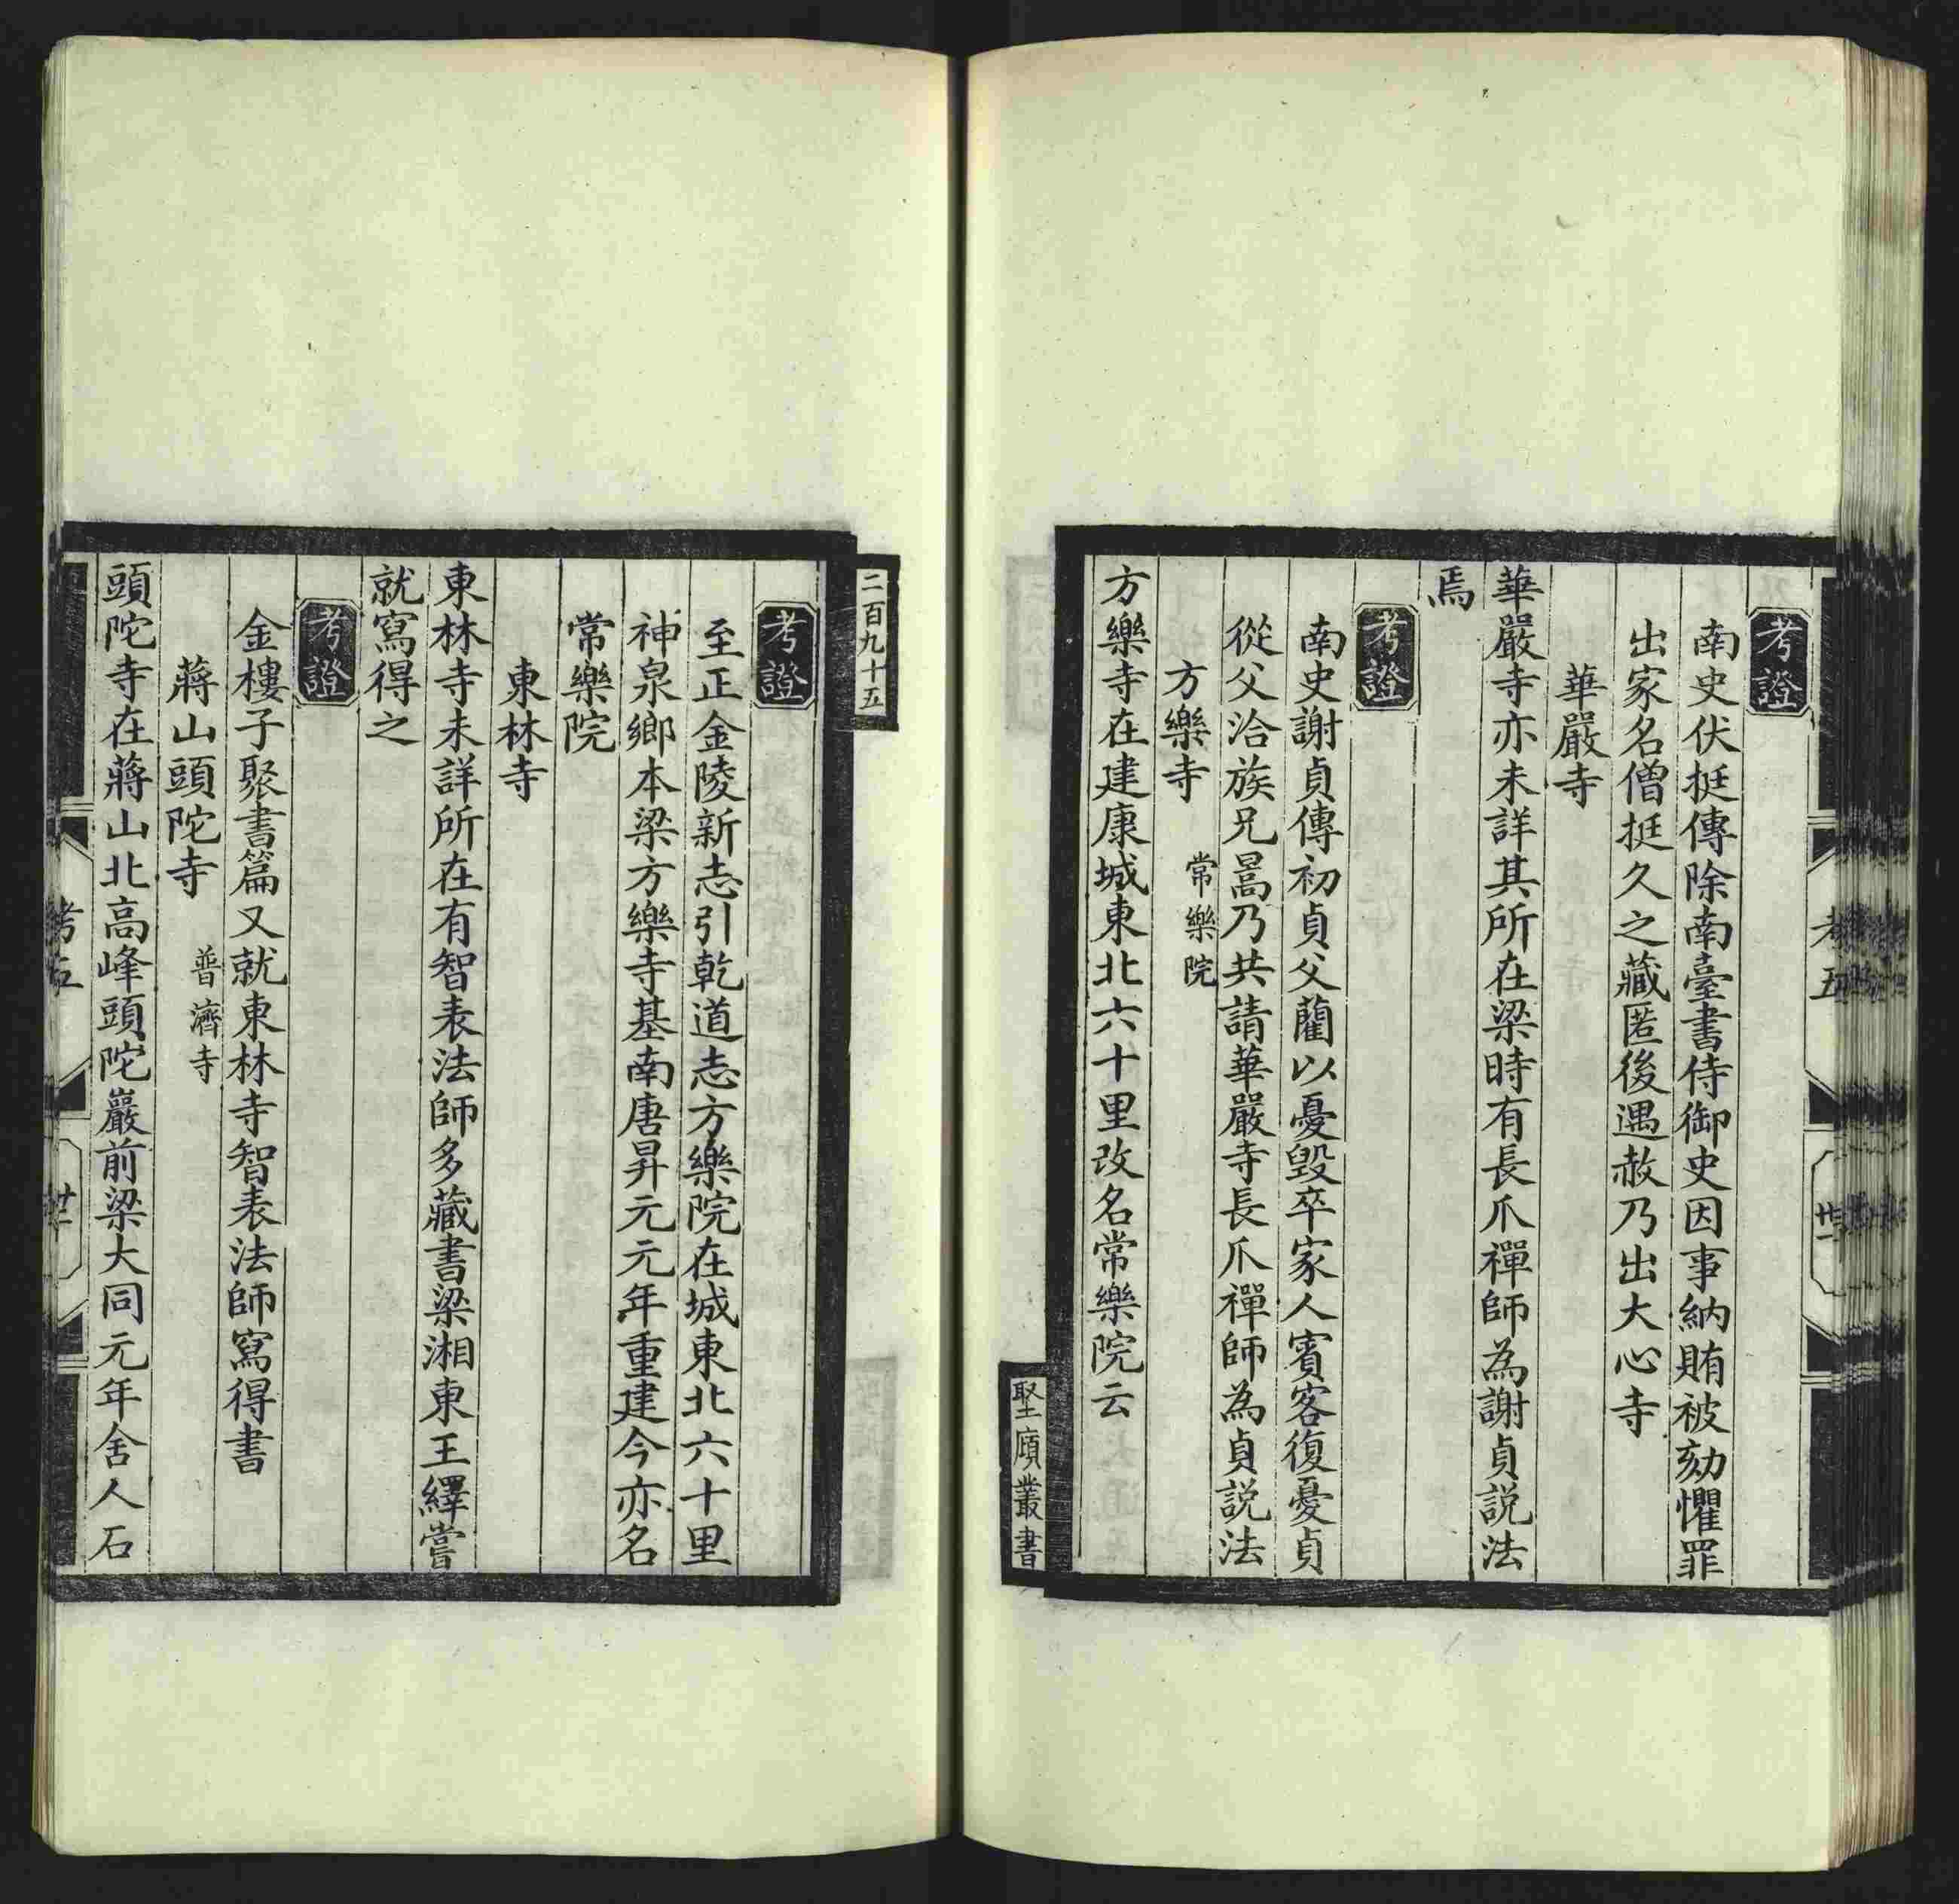 考證
南史伏挺傳除南臺書侍御史因事納賄被劾懼罪
出家名僧挺久之藏匿後遇赦乃出大心寺
華嚴寺
華嚴寺亦未詳其所在梁時有長爪禪師為謝貞説法
焉
考證
南史謝貞傳初貞父藺以憂毀卒家人賓客復憂貞
從父洽族兄暠乃共請華嚴寺長爪禪師為貞説法
方樂寺 常樂院
方樂寺在建康城東北六十里改名常樂院云
聖廎叢書
二百九十五
考證
至正金陵新志引乾道志方樂院在城東北六十里
神泉鄉本梁方樂寺基南唐昇元元年重建今亦名
常樂院
東林寺
東林寺未詳所在有智表法師多藏書梁湘東王繹嘗
就寫得之
考證
金樓子聚書篇又就東林寺智表法師寫得書
蔣山頭陀寺 普濟寺
頭陀寺在蔣山北高峰頭陀巖前梁大同元年舍人石
考五